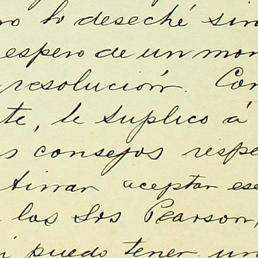 ro lo deseché sin
espero de un mom
resolución. Con
te, le suplico á
s consejos respe
tirar aceptar ese
los Srs Pearson,
i puedo tener un